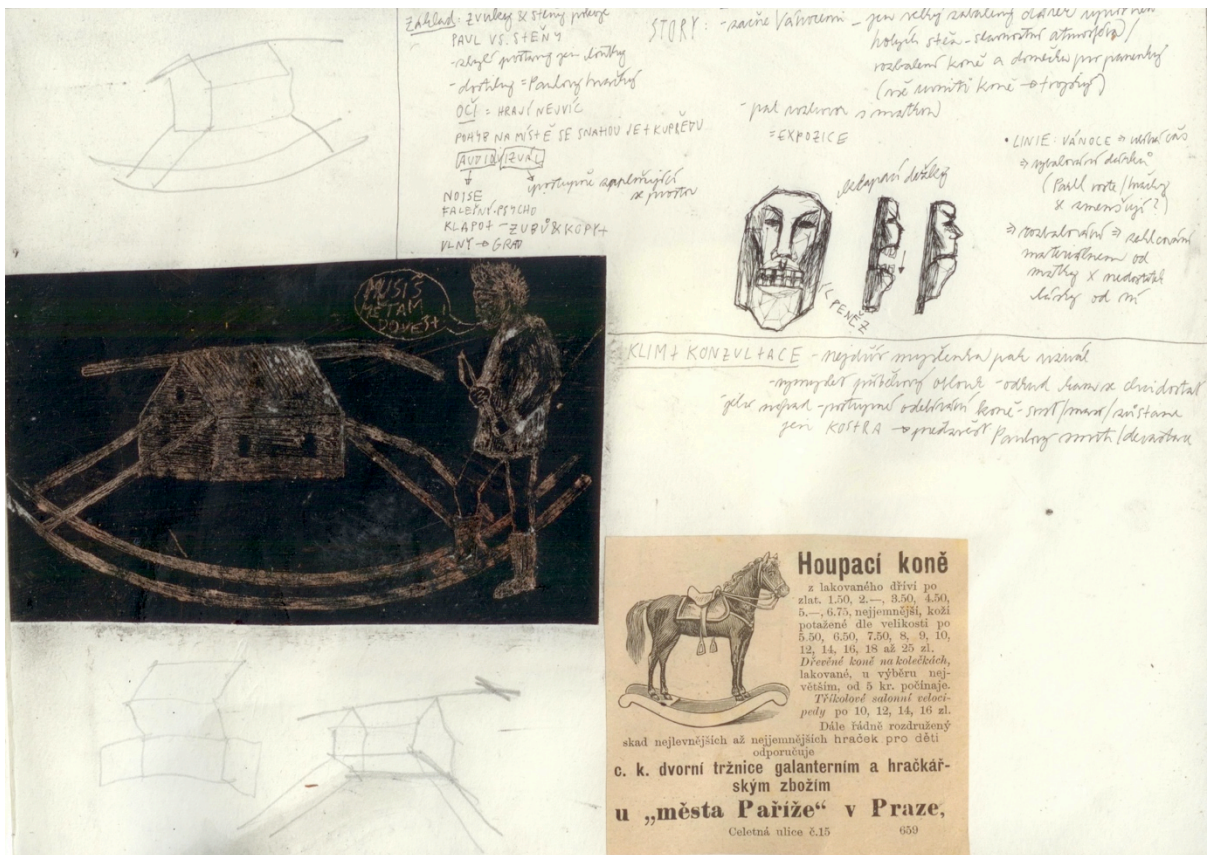 Základ: zvuky & stěny pokoje
PAUL VS. STĚNY
- zbylé postavy jen loutky
- dostihy = Paulovy hračky
OČI = HRAJÍ NEJVÍC
POHYB NA MÍSTĚ SE SNAHOU JET KUPŘEDU
AUDIO VIZUÁL
postupně zaplňující
se prostor
NOISE
FALEŠNÝ PSYCHO
KLAPOT - ZUBŮ & KOPYT
VLNY → GRAD
STORY: - začne Vánocemi - jen velký zabalený dárek uprostřed
holých stěn - slavnostní atmosféra /
rozbalení koně a domečku pro panenky
- pak rozhovor s matkou
= EXPOZICE
• LINIE: VÁNOCE ⇒
⇒ rozbalování dárků
(Paul roste / hračky
se zmenšují?)
⇒ rozbalování ⇒ zahlcování
materiálnem od
matky X nedostatek
lásky od ní
PENĚZ
MUSÍŠ
MĚ TAM
DOVÉST
KLIMT KONZULTACE - nejdřív myšlenka pak vizuál
- vymyslet příběhový oblouk - odkud kam se chci dostat
nápad - postupné odebírání koně - srst / maso / zůstane
jen KOSTRA → předzvěst Paulovy smrti /
Houpací koně
z lakovaného dříví po
zlat. 1.50, 2.—, 3.50, 4.50,
5.—, 6.75, nejjemnější, koží
potažené dle velikosti po
5.50, 6.50, 7.50, 8, 9, 10,
12, 14, 16, 18 až 25 zl.
Dřevěné koně na kolečkách,
lakované, u výběru nej-
větším, od 5 kr. počínaje.
Tříkolové salonní veloci-
pedy po 10, 12, 14, 16 zl.
Dále řádně rozdružený
skad nejlevnějších až nejjemnějších hraček pro děti
odporučuje
c. k. dvorní tržnice galanterním a hračkář-
ským zbožím
u „města Paříže“ v Praze,
Celetná ulice č.15 659